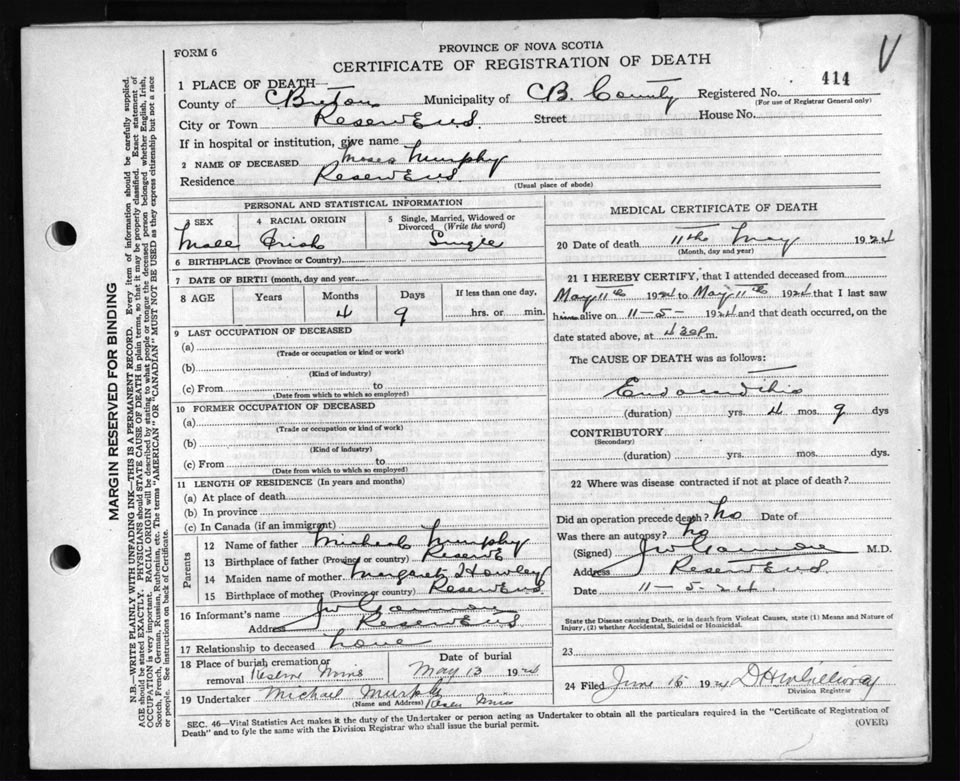 FORM 6
PROVINCE OF NOVA SCOTIA
CERTIFICATE OF REGISTRATION OF DEATH
V
414
1 PLACE OF DEATH—
County of C Breton Municipality of C.B. County Registered No.
(For use of Registrar General only)
City or Town Street House No.
If in hospital or institution, give name
2 NAME OF DECEASED Moses Murphy
Residence
(Usual place of abode)
PERSONAL AND STATISTICAL INFORMATION
3 SEX 4 RACIAL ORIGIN 5 Single, Married, Widowed or Divorced (Write the word)
Male Irish Single
6 BIRTHPLACE (Province or Country)
7 DATE OF BIRTH (month, day and year
8 AGE Years Months Days If less than one day,
4 9 hrs. or min.
9 LAST OCCUPATION OF DECEASED
(a)
(Trade or occupation or kind or work)
(b)
(Kind of industry)
(c) From to
(Date from which to which so employed)
10 FORMER OCCUPATION OF DECEASED
(a)
(Trade or occupation or kind of work)
(b)
(Kind of industry)
(c) From to
(Date from which to which so employed)
11 LENGTH OF RESIDENCE (In years and months)
(a) At place of death
(b) In province
(c) In Canada (if an immigrant)
Parents
12 Name of father Michael Murphy
13 Birthplace of father (Province or country) Reserve
14 Maiden name of mother Margaret Howley
15 Birthplace of mother (Province or country)
16 Informant's name
Address
17 Relationship to deceased none
18 Place of burial cremation or removal Reserve Mines
Date of burial May 13 1924
19 Undertaker Michael Murphy
(Name and Address) Reser Mines
MEDICAL CERTIFICATE OF DEATH
20 Date of death 11th May 1924
(Month, day and year)
21 I HEREBY CERTIFY, that I attended deceased from
May 11th 1924 to May 11th 1924 that I last saw
him alive on 11-5- 1924 and that death occurred, on the
date stated above, at 430 p m.
The CAUSE OF DEATH was as follows:
Endocarditis
(duration) yrs. 4 mos. 9 dys
CONTRIBUTORY
(Secondary)
(duration) yrs. mos. dys.
22 Where was disease contracted if not at place of death?
Did an operation precede death? No Date of
Was there an autopsy? No
(Signed) M.D.
Address
Date 11-5-24.
State the Disease causing Death, or in death from Violent Causes, state (1) Means and Nature of
Injury, (2) whether Accidental, Suicidal or Homicidal.
23
24 Filed June 15 1924
Division Registrar
SEC. 46—Vital Statistics Act makes it the duty of the Undertaker or person acting as Undertaker to obtain all the particulars required in the "Certificate of Registration of
Death" and to fyle the same with the Division Registrar who shall issue the burial permit.
(OVER)
MARGIN RESERVED FOR BINDING
N.B.—WRITE PLAINLY WITH UNFADING INK—THIS IS A PERMANENT RECORD. Every item of information should be carefully supplied.
AGE should be stated EXACTLY. PHYSICIANS should STATE CAUSE OF DEATH in plain terms, so that it may be properly classified. Exact statement of
OCCUPATION is very important. RACIAL ORIGIN will be described by stating to what people or tongue the deceased person belonged whether English, Irish,
Scotch, French, German, Russian, Ruthenian, etc. The terms "AMERICAN" or "CANADIAN" MUST NOT BE USED as they express citizenship but not a race
or people. See instructions on back of Certificate.